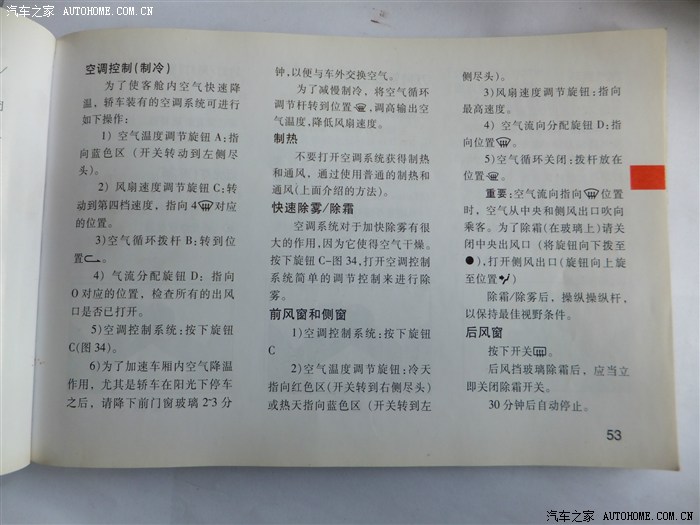 汽车之家 AUTOHOME.COM.CN
空调控制(制冷)
为了使客舱内空气快速降
温，轿车装有的空调系统可进行
如下操作:
1) 空气温度调节旋钮 A:指
向蓝色区（开关转动到左侧尽
头)。
2) 风扇速度调节旋钮 C:转
动到第四档速度，指向 4 对应
的位置。
3)空气循环拨杆 B:转到位
置。
4) 气流分配旋钮 D: 指向
O 对应的位置，检查所有的出风
口是否已打开。
5)空调控制系统:按下旋钮
C(图 34)。
6)为了加速车厢内空气降温
作用，尤其是轿车在阳光下停车
之后，请降下前门窗玻璃 2~3 分
钟,以便与车外交换空气。
为了减慢制冷，将空气循环
调节杆转到位置，调高输出空
气温度,降低风扇速度。
制热
不要打开空调系统获得制热
和通风，通过使用普通的制热和
通风(上面介绍的方法)。
快速除雾/除霜
空调系统对于加快除雾有很
大的作用,因为它使得空气干燥。
按下旋钮 C-图 34,打开空调控制
系统简单的调节控制来进行除
雾。
前风窗和侧窗
1)空调控制系统:按下旋钮
C
2)空气温度调节旋钮:冷天
指向红色区(开关转到右侧尽头)
或热天指向蓝色区（开关转到左
侧尽头)。
3)风扇速度调节旋钮:指向
最高速度。
4) 空气流向分配旋钮 D:指
向位置。
5)空气循环关闭:拨杆放在
位置。
重要:空气流向指向位置
时，空气从中央和侧风出口吹向
乘客。为了除霜(在玻璃上)请关
闭中央出风口（将旋钮向下拨至
●),打开侧风口(旋钮向上旋
至位置)
除霜/除雾后，操纵操纵杆，
以保持最佳视野条件。
后风窗
按下开关。
后风挡玻璃除霜后，应当立
即关闭除霜开关。
30 分钟后自动停止。
53
汽车之家 AUTOHOME.COM.CN